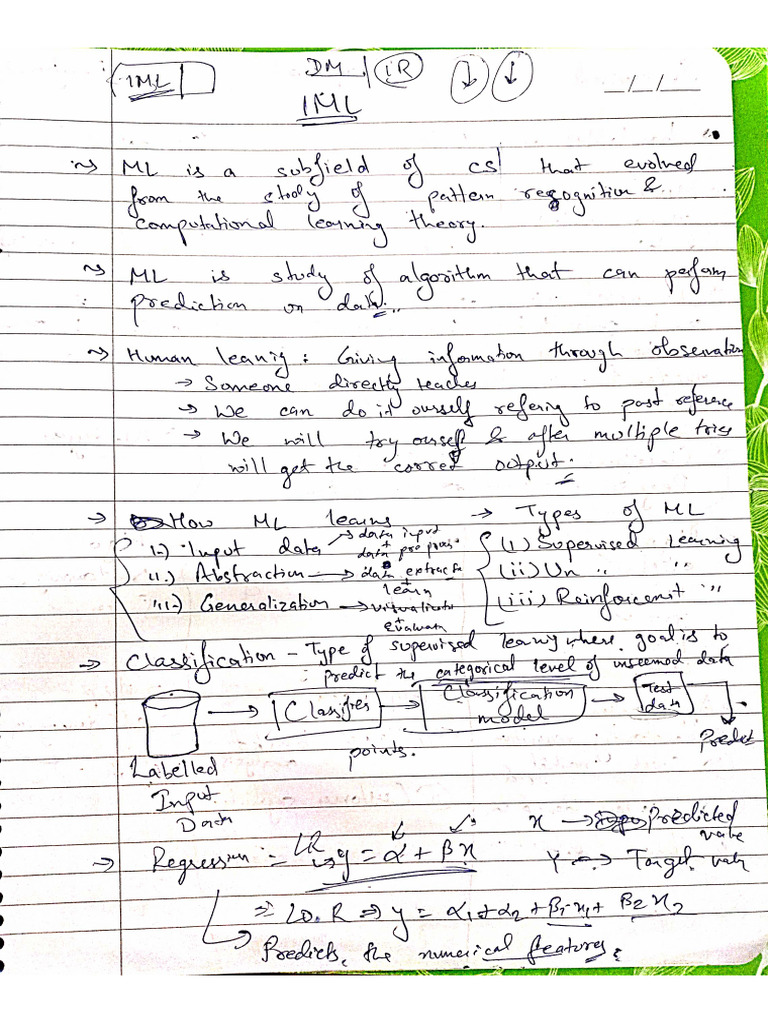 IML
DM | IR
IML
ML is a subfield of CS that evolved
from the study of pattern recognition &
computational learning theory.
ML is study of algorithm that can perform
prediction on data.
Human leanig : Giving information through observation
→ Someone directly teaches
→ We can do it ourself refering to past reference
→ We will try ourself & after multiple tries
will get the correct output.
→ How ML learns
i.) Input data → data input
+
data pre process
ii.) Abstraction → data extracta
+
learn
iii.) Generalization →
+
→ Types of ML
(i) Supervised Learning
(ii) Un " "
(iii) Reinforcemet "
→ Classification - Type of supervised learning where goal is to
predict the categorical level of unseemed data
points.
Labelled
Input
Data
Classifies
Classification
model
Test
data
Predict
→ Regression = LR → y = α + βx
x → Predicted
value
Y → Target
⇒ R ⇒ y = α1 + α2 + β1 x1 + β2 x2
Predicts the numerical features.